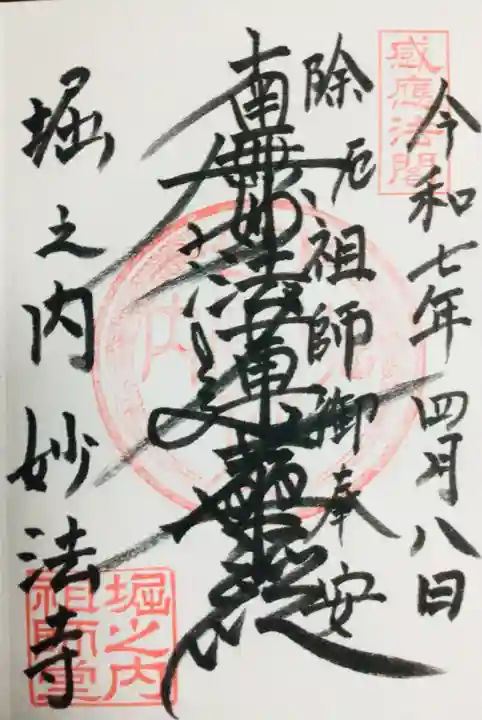 感應法閣
令和七年四月八日
除厄祖師御奉安
南無妙法蓮華経
堀之内妙法寺
堀之内
祖師堂